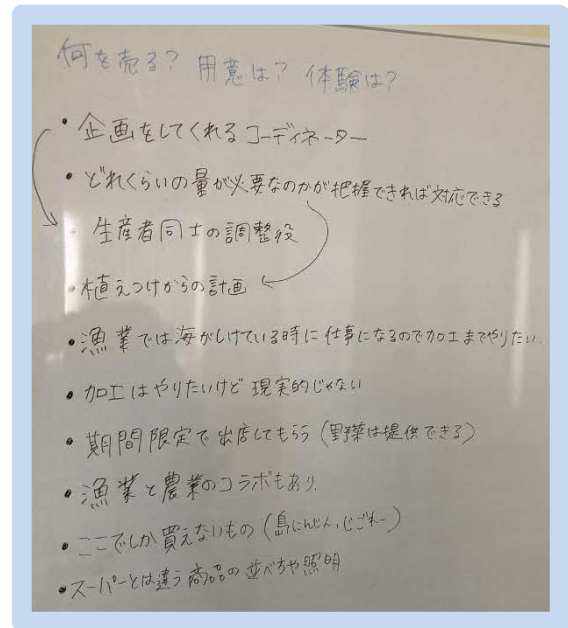 何を売る? 用意は? 体験は?
・企画をしてくれるコーディネーター
・どれくらいの量が必要なのかが把握できれば対応できる
・生産者同士の調整役
・植えつけからの計画
・漁業では海がしけている時に仕事になるので加工までやりたい.
・加工はやりたいけど現実的じゃない
・期間限定で出店してもらう(野菜は提供できる)
・漁業と農業のコラボもあり.
・ここでしか買えないもの(島にんじん,じごれー)
・スーパーとは違う商品の並べちや照明